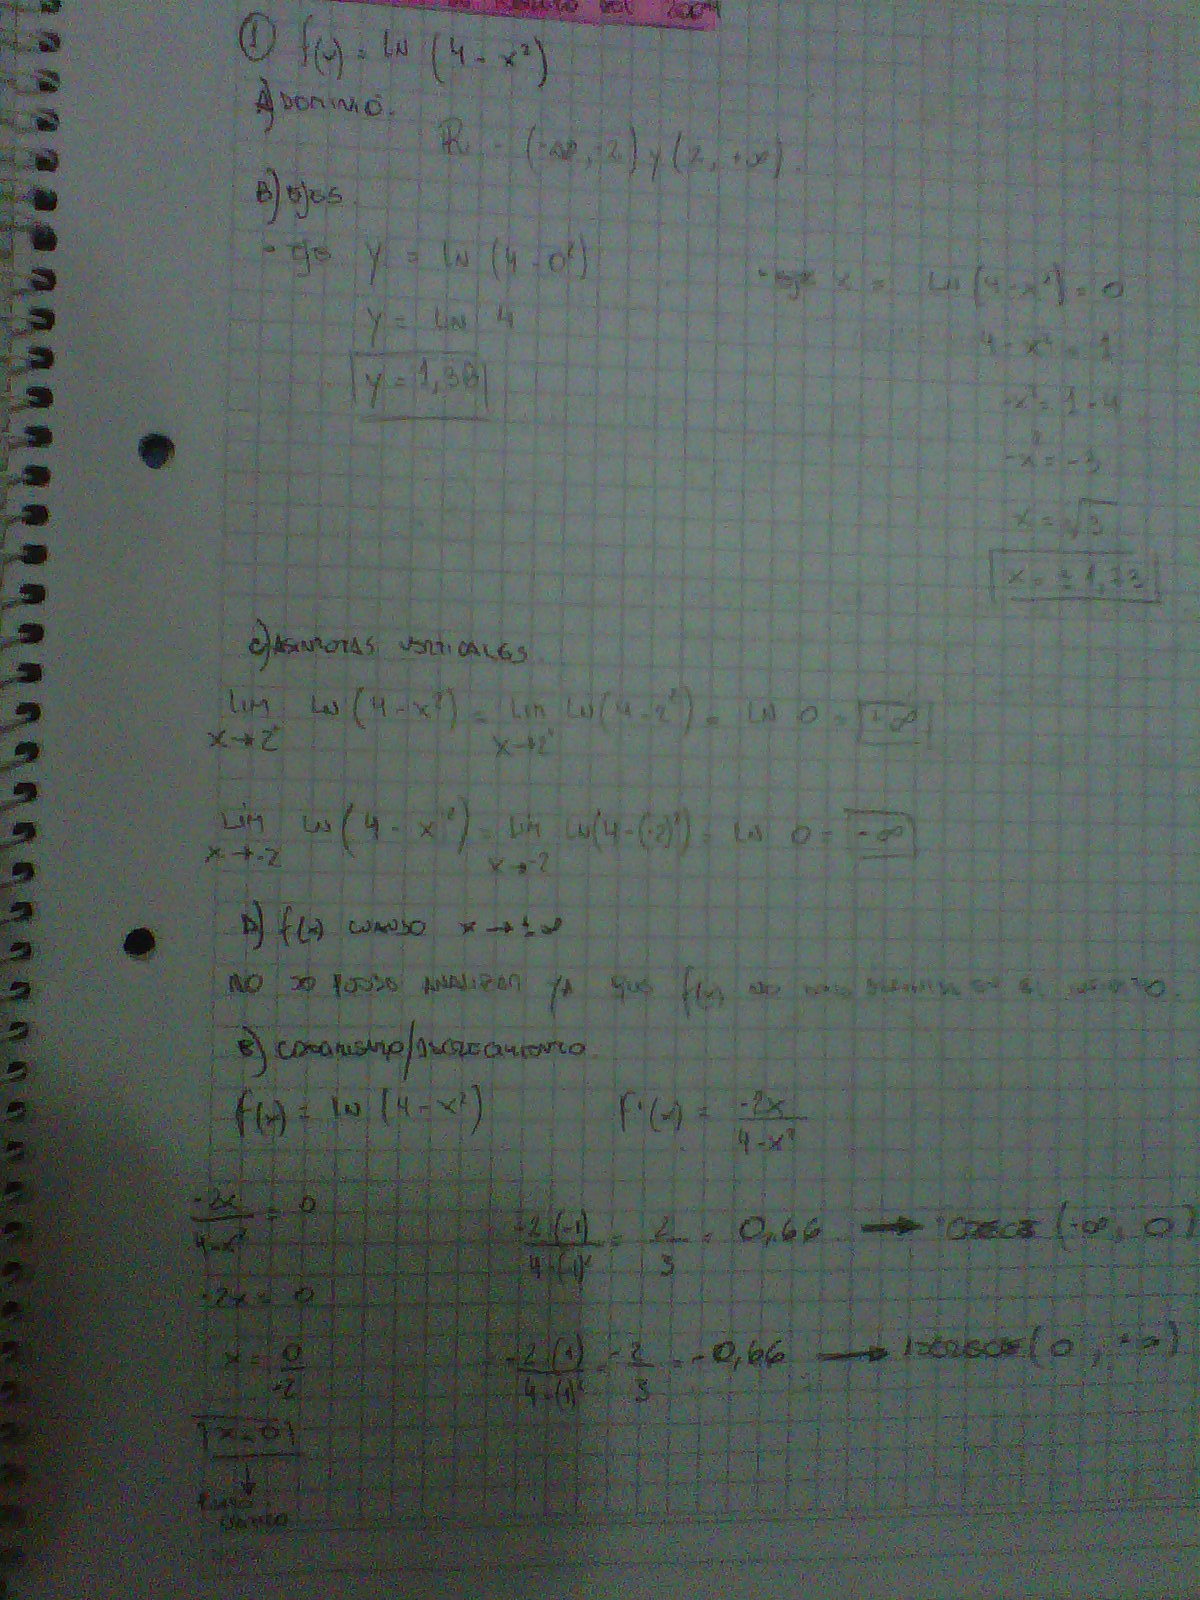 2004
① f(x) = LN (4 - x²)
A) DOMINIO.
R - (-∞, -2) y (2, +∞).
B) EJES.
- EJE y = LN (4 - 0²)
y = LN 4
y = 1,38
- EJE x = LN (4 - x²) = 0
4 - x² = 1
-x² = 1 - 4
-x² = -3
x = √3
x = ± 1,73
C) ASINTOTAS VERTICALES
LIM x→2 LN (4 - x²) = LIM x→2 LN (4 - 2²) = LN 0 =
LIM x→-2 LN (4 - x²) = LIM x→-2 LN (4 - (-2)²) = LN 0 = -∞
D) f(x) CUANDO x → ±∞
NO SE PUEDE ANALIZAR YA QUE f(x) NO
E) CRECIMIENTO/DECRECIMIENTO
f(x) = LN (4 - x²) f'(x) = -2x / 4 - x²
-2x / 4 - x² = 0
-2 (-1) / 4 - (-1)² = 2 / 3 = 0,66 → (-∞, 0)
-2x = 0
x = 0 / -2
-2 (1) / 4 - (1)² = -2 / 3 = -0,66 → (0, +∞)
x = 0
↓